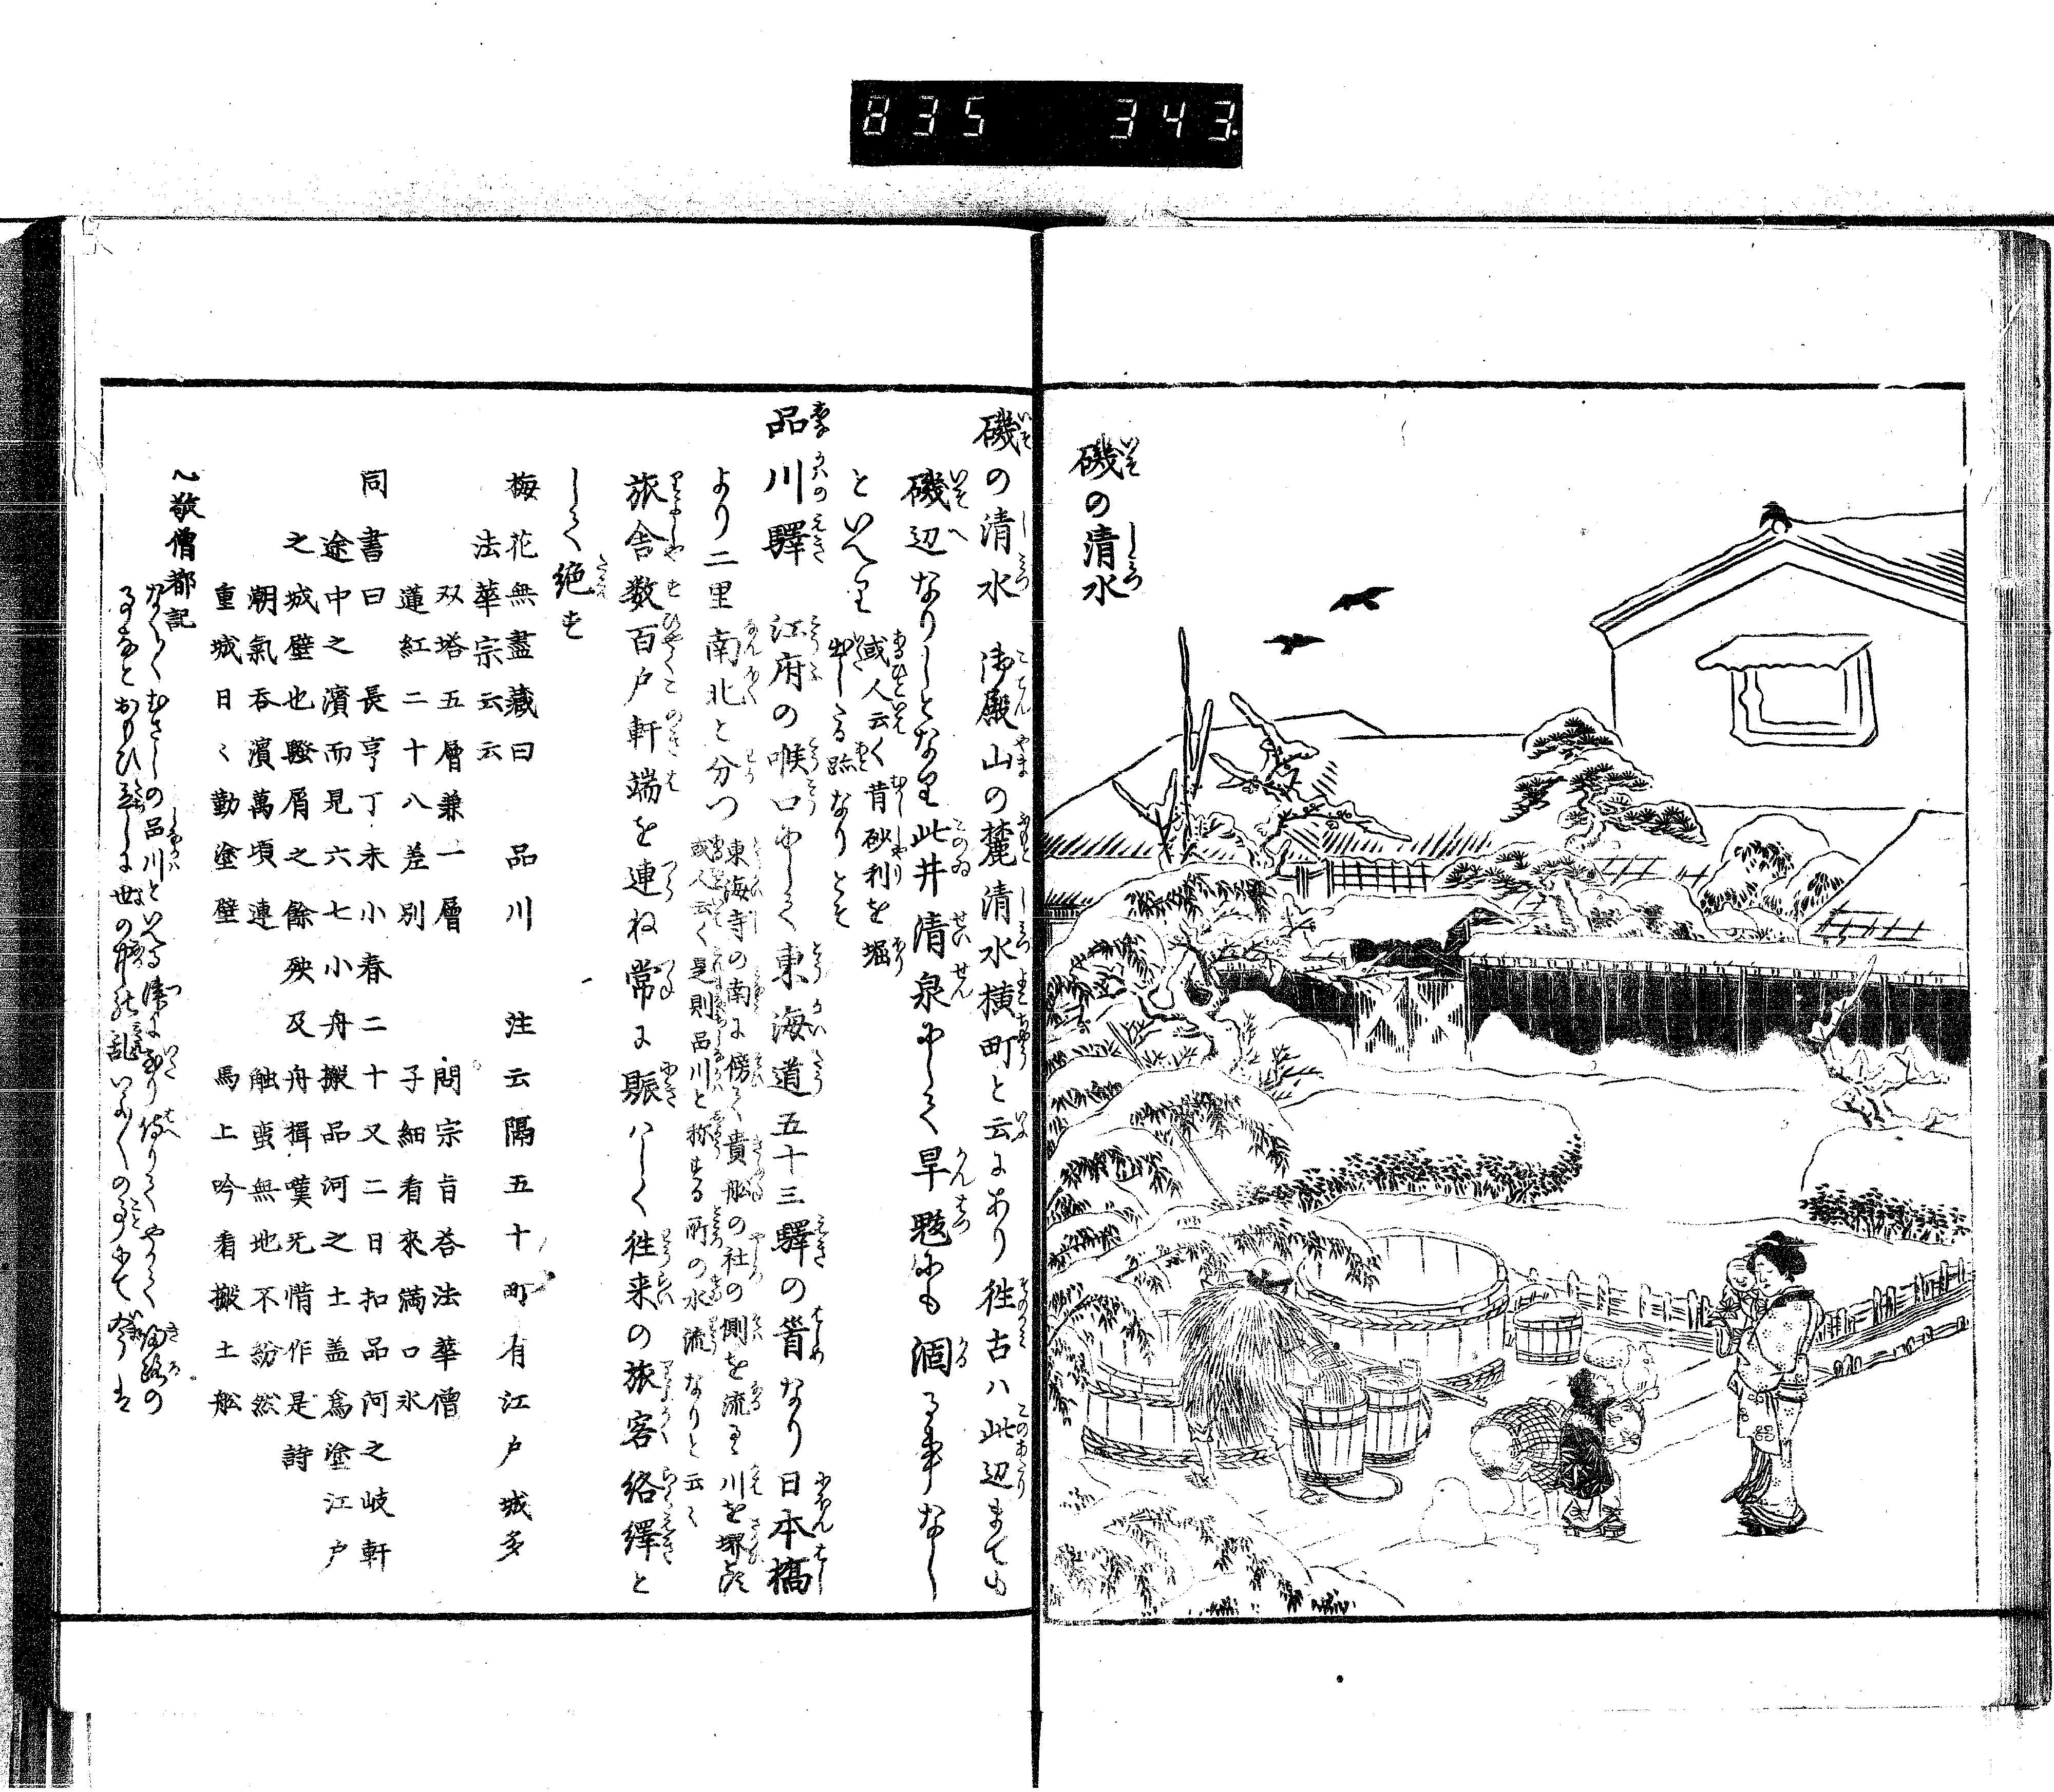 835 343
磯の清水
磯の清水 御殿山の麓清水横町と云にあり往古ハ此辺まても
磯辺なりしとなり此井清泉にして旱魃にも涸る事なし
といへり 或人云く昔砂利を掘
出したる跡なりとそ
品川驛 江府の喉口にして東海道五十三驛の首なり日本橋
より二里南北と分つ 東海寺の南に傍て貴舩の社の側を流るゝ川を堺とす
或人云く是則品川と称する所の水流なりと云々
旅舎数百戸軒端を連ね常に賑ハしく徃来の旅客絡繹と
して絶す
梅花無盡藏曰 品川 注云隔五十町有江戸城多
法華宗云云
双塔五層兼一層 問宗旨答法華僧
蓮紅二十八差別 子細看來滿口氷
同書曰長亨丁未小春二十又二日扣品河之岐軒
途中之濱而見六七小舟搬品河之土盖爲塗江戸
之城壁也騷屑之餘殃及舟楫嘆无惜作是詩
潮氣呑濱萬頃連 触蛮無地不紛然
重城日々勤塗壁 馬上吟看搬土舩
心敬僧都記
なくむさしの品川といへる津にいたり侍りてやうやく帰路の
事なとおもひ立しに世の中の乱いよいよの事にて